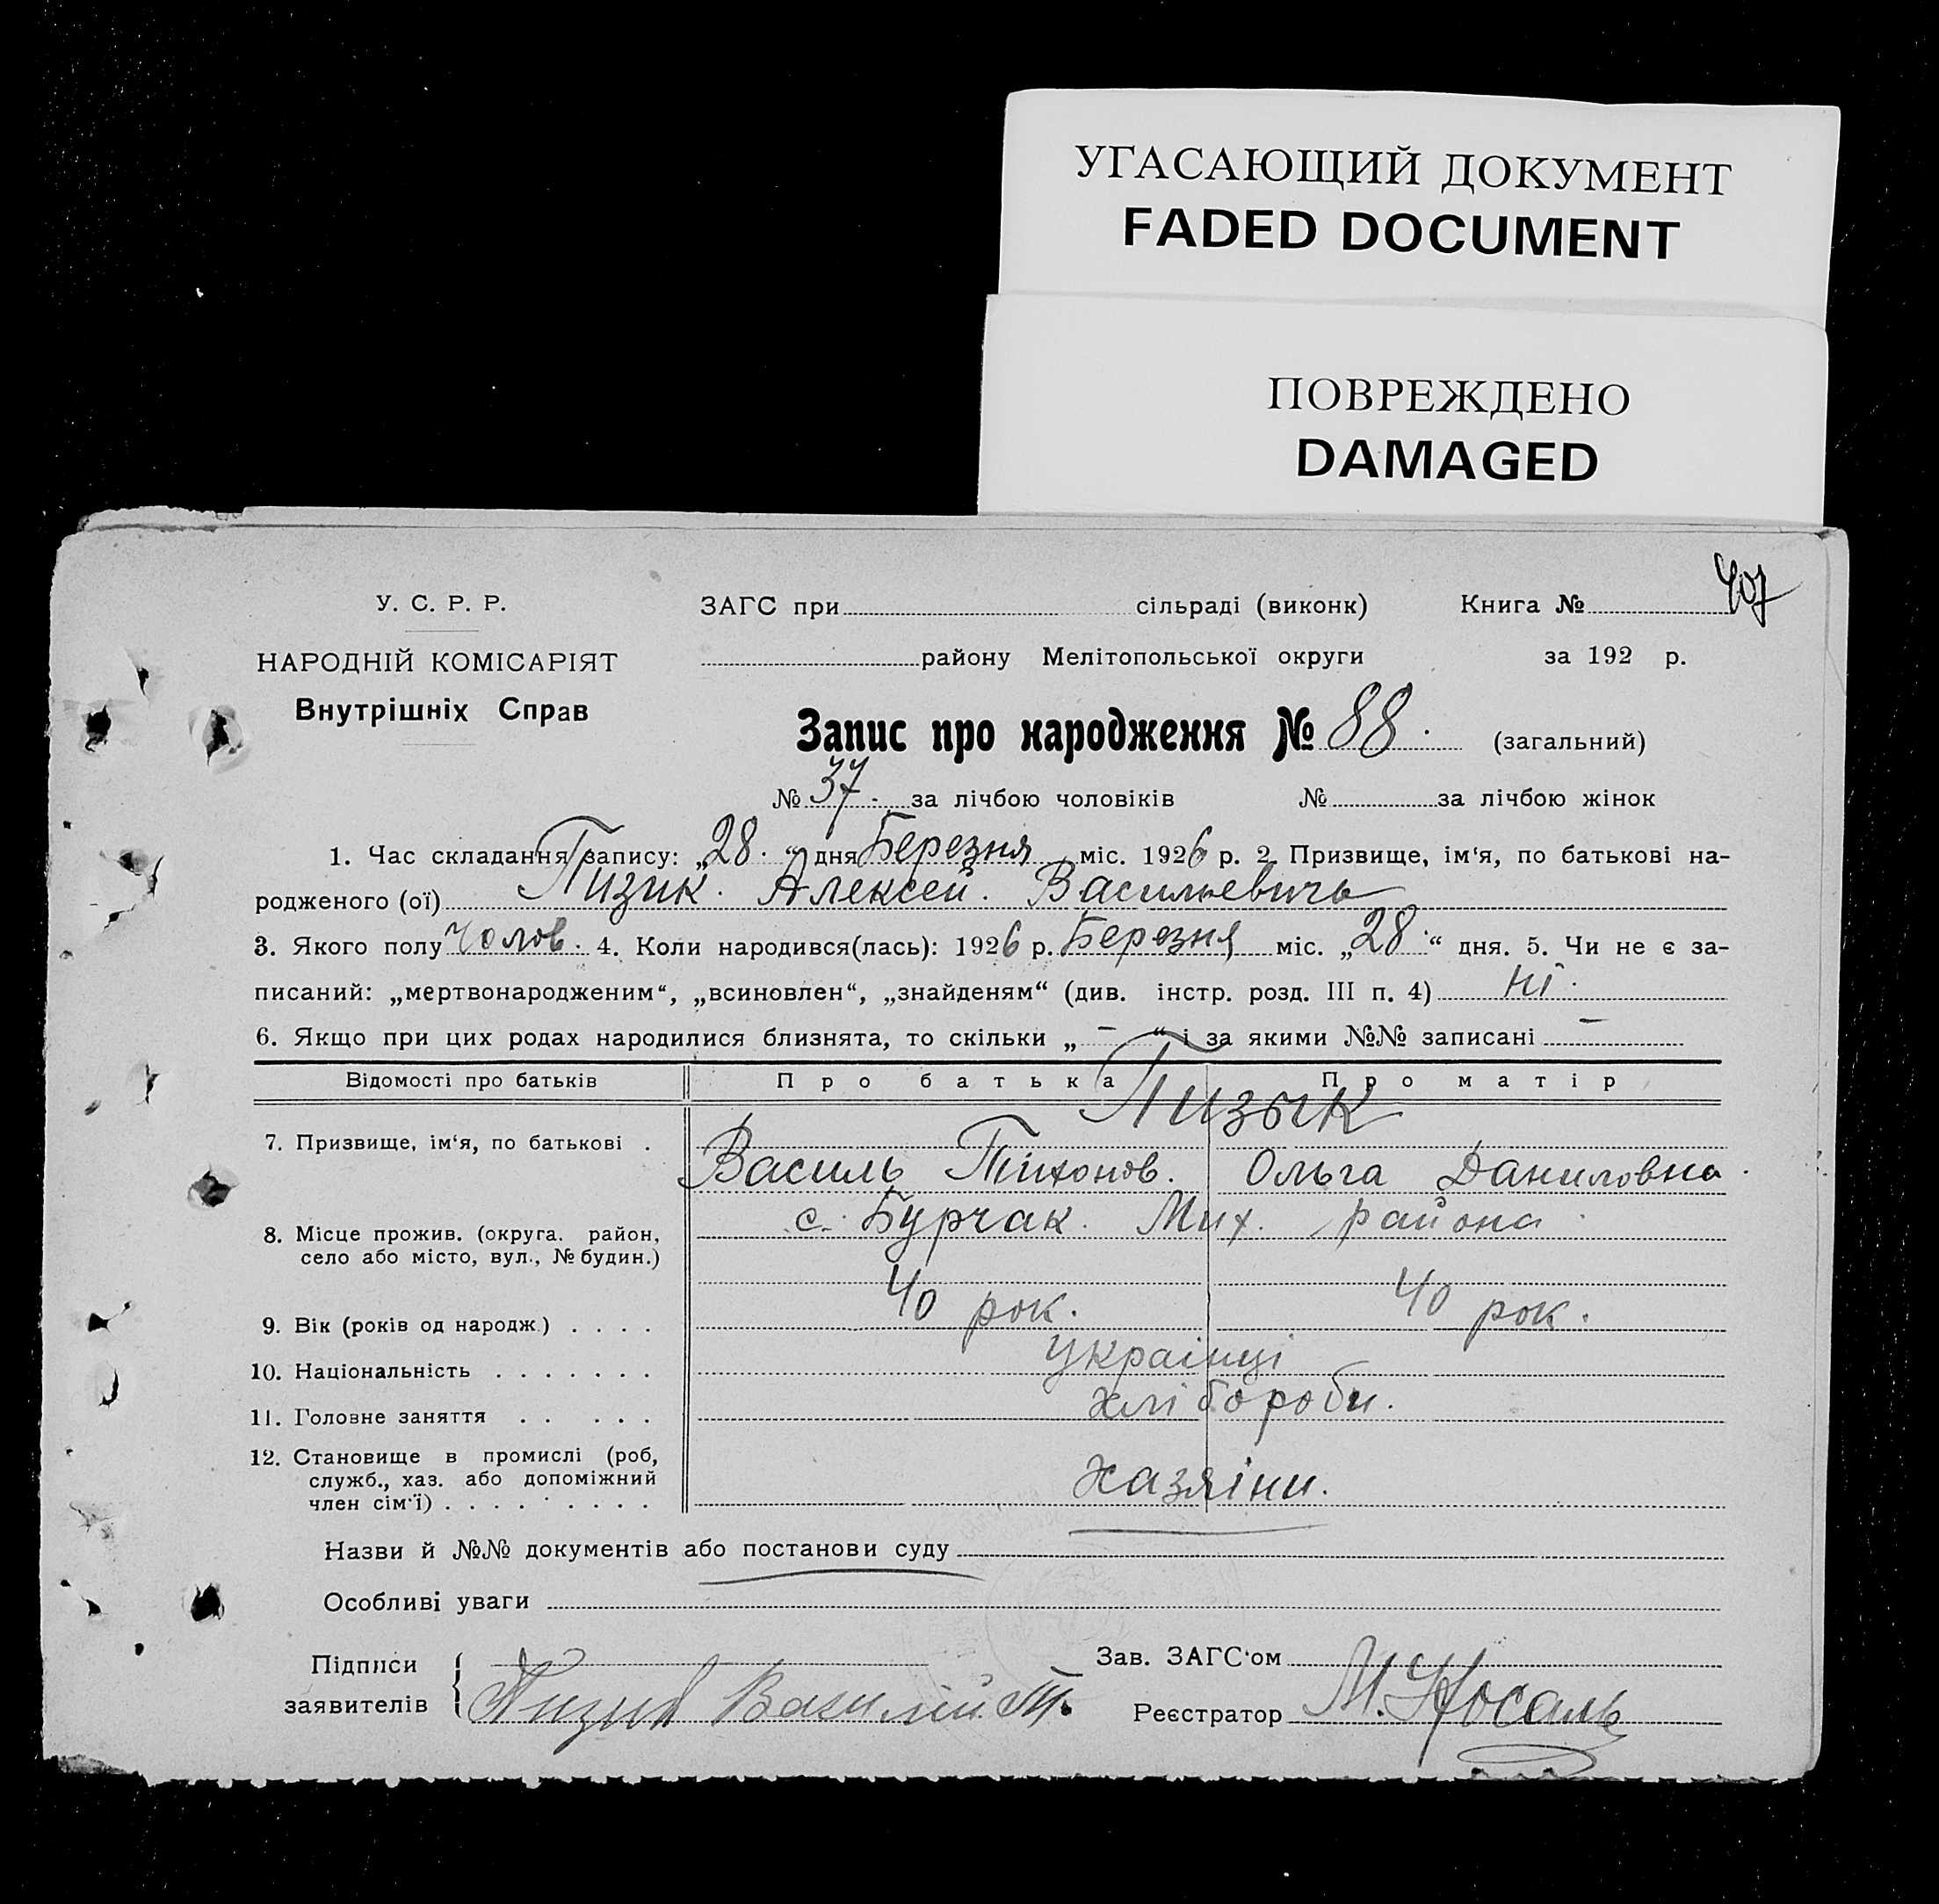 УГАСАЮЩИЙ ДОКУМЕНТ
FADED DOCUMENT
ПОВРЕЖДЕНО
DAMAGED
407
У. С. Р. Р.
НАРОДНІЙ КОМІСАРІЯТ
Внутрішніх Справ
ЗАГС при сільраді (виконк) Книга №
району Мелітопольської округи за 192 р.
Запис про народження № 88. (загальний)
№ 37. за лічбою чоловіків № за лічбою жінок
1. Час складання запису: „28.“ дня Березня міс. 1926 р. 2. Призвище, ім‘я, по батькові на-
родженого (ої) Пизик. Алексей. Васильевичь
3. Якого полу Чолов. 4. Коли народився(лась): 1926 р. Березня міс. „28.“ дня. 5. Чи не є за-
писаний: „мертвонародженим“, „всиновлен“, „знайденям“ (див. інстр. розд. III п. 4) Ні.
6. Якщо при цих родах народилися близнята, то скільки „–“ і за якими №№ записані –
Відомості про батьків Про батька Про матір
Пизык
7. Призвище, ім‘я, по батькові . Василь Тихонов. Ольга Даниловна.
8. Місце прожив. (округа. район, с. Бурчак. Мих. района.
село або місто, вул., № будин.)
9. Вік (років од народж.) . . . . 40 рок. 40 рок.
10. Національність . . . . . . . українці
11. Головне заняття . . . . . хлібороби.
12. Становище в промислі (роб,
служб., хаз. або допоміжний
член сім‘ї) . . . . . . . . . хазяіни.
Назви й №№ документів або постанови суду
Особливі уваги
Підписи Зав. ЗАГС‘ом
заявителів Пизик Василій Т. Реєстратор М. Носаль